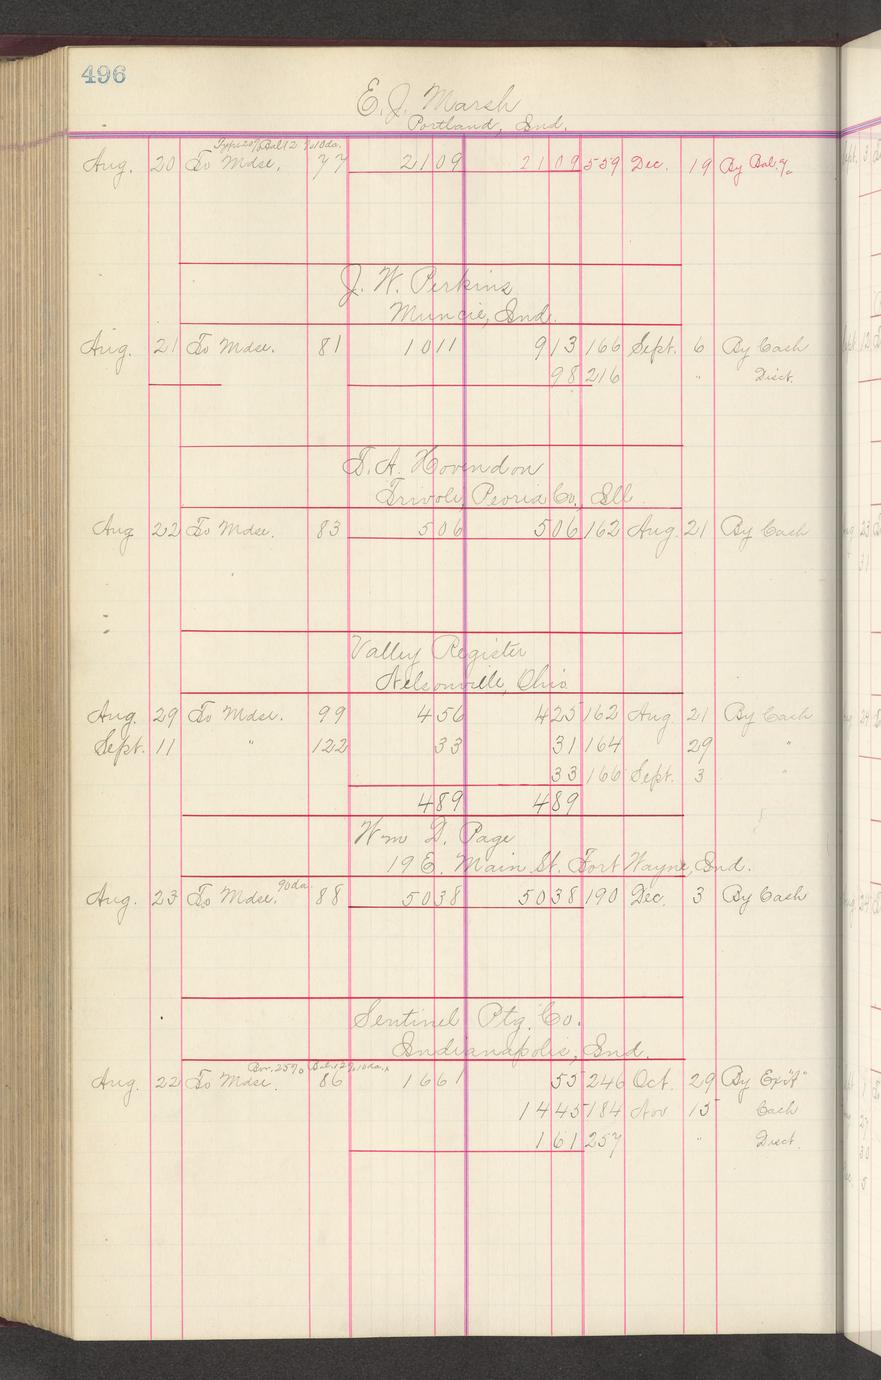 496
E. J. Marsh
Portland, Ind.
Aug. 20 To Mdse. 77 2109 2109 559 Dec. 19 By Bal. %
J. W. Perkins
Muncie, Ind.
Aug. 21 To Mdse. 81 1011 913 166 Sept. 6 By Cash
98 216 " Disct.
T. A. Hovendon
Trivoli, Peoria Co., Ill.
Aug 22 To Mdse. 83 506 506 162 Aug. 21 By Cash
Valley Register
Nelsonville, Ohio
Aug. 29 To Mdse. 99 456 425 162 Aug. 21 By Cash
Sept. 11 " 122 33 31 164 29 "
33 166 Sept. 3 "
489 489
Wm D. Page
19 E. Main St. Fort Wayne, Ind.
Aug. 23 To Mdse. 90 da. 88 5038 5038 190 Dec. 3 By Cash
Sentinel Ptg. Co.
Indianapolis, Ind.
25% Bal. 12%, 10 da.
Aug. 22 To Mdse. 86 1661 55 246 Oct. 29 By Ex "A"
1445 184 Nov 15 Cash
161 257 " Disct.